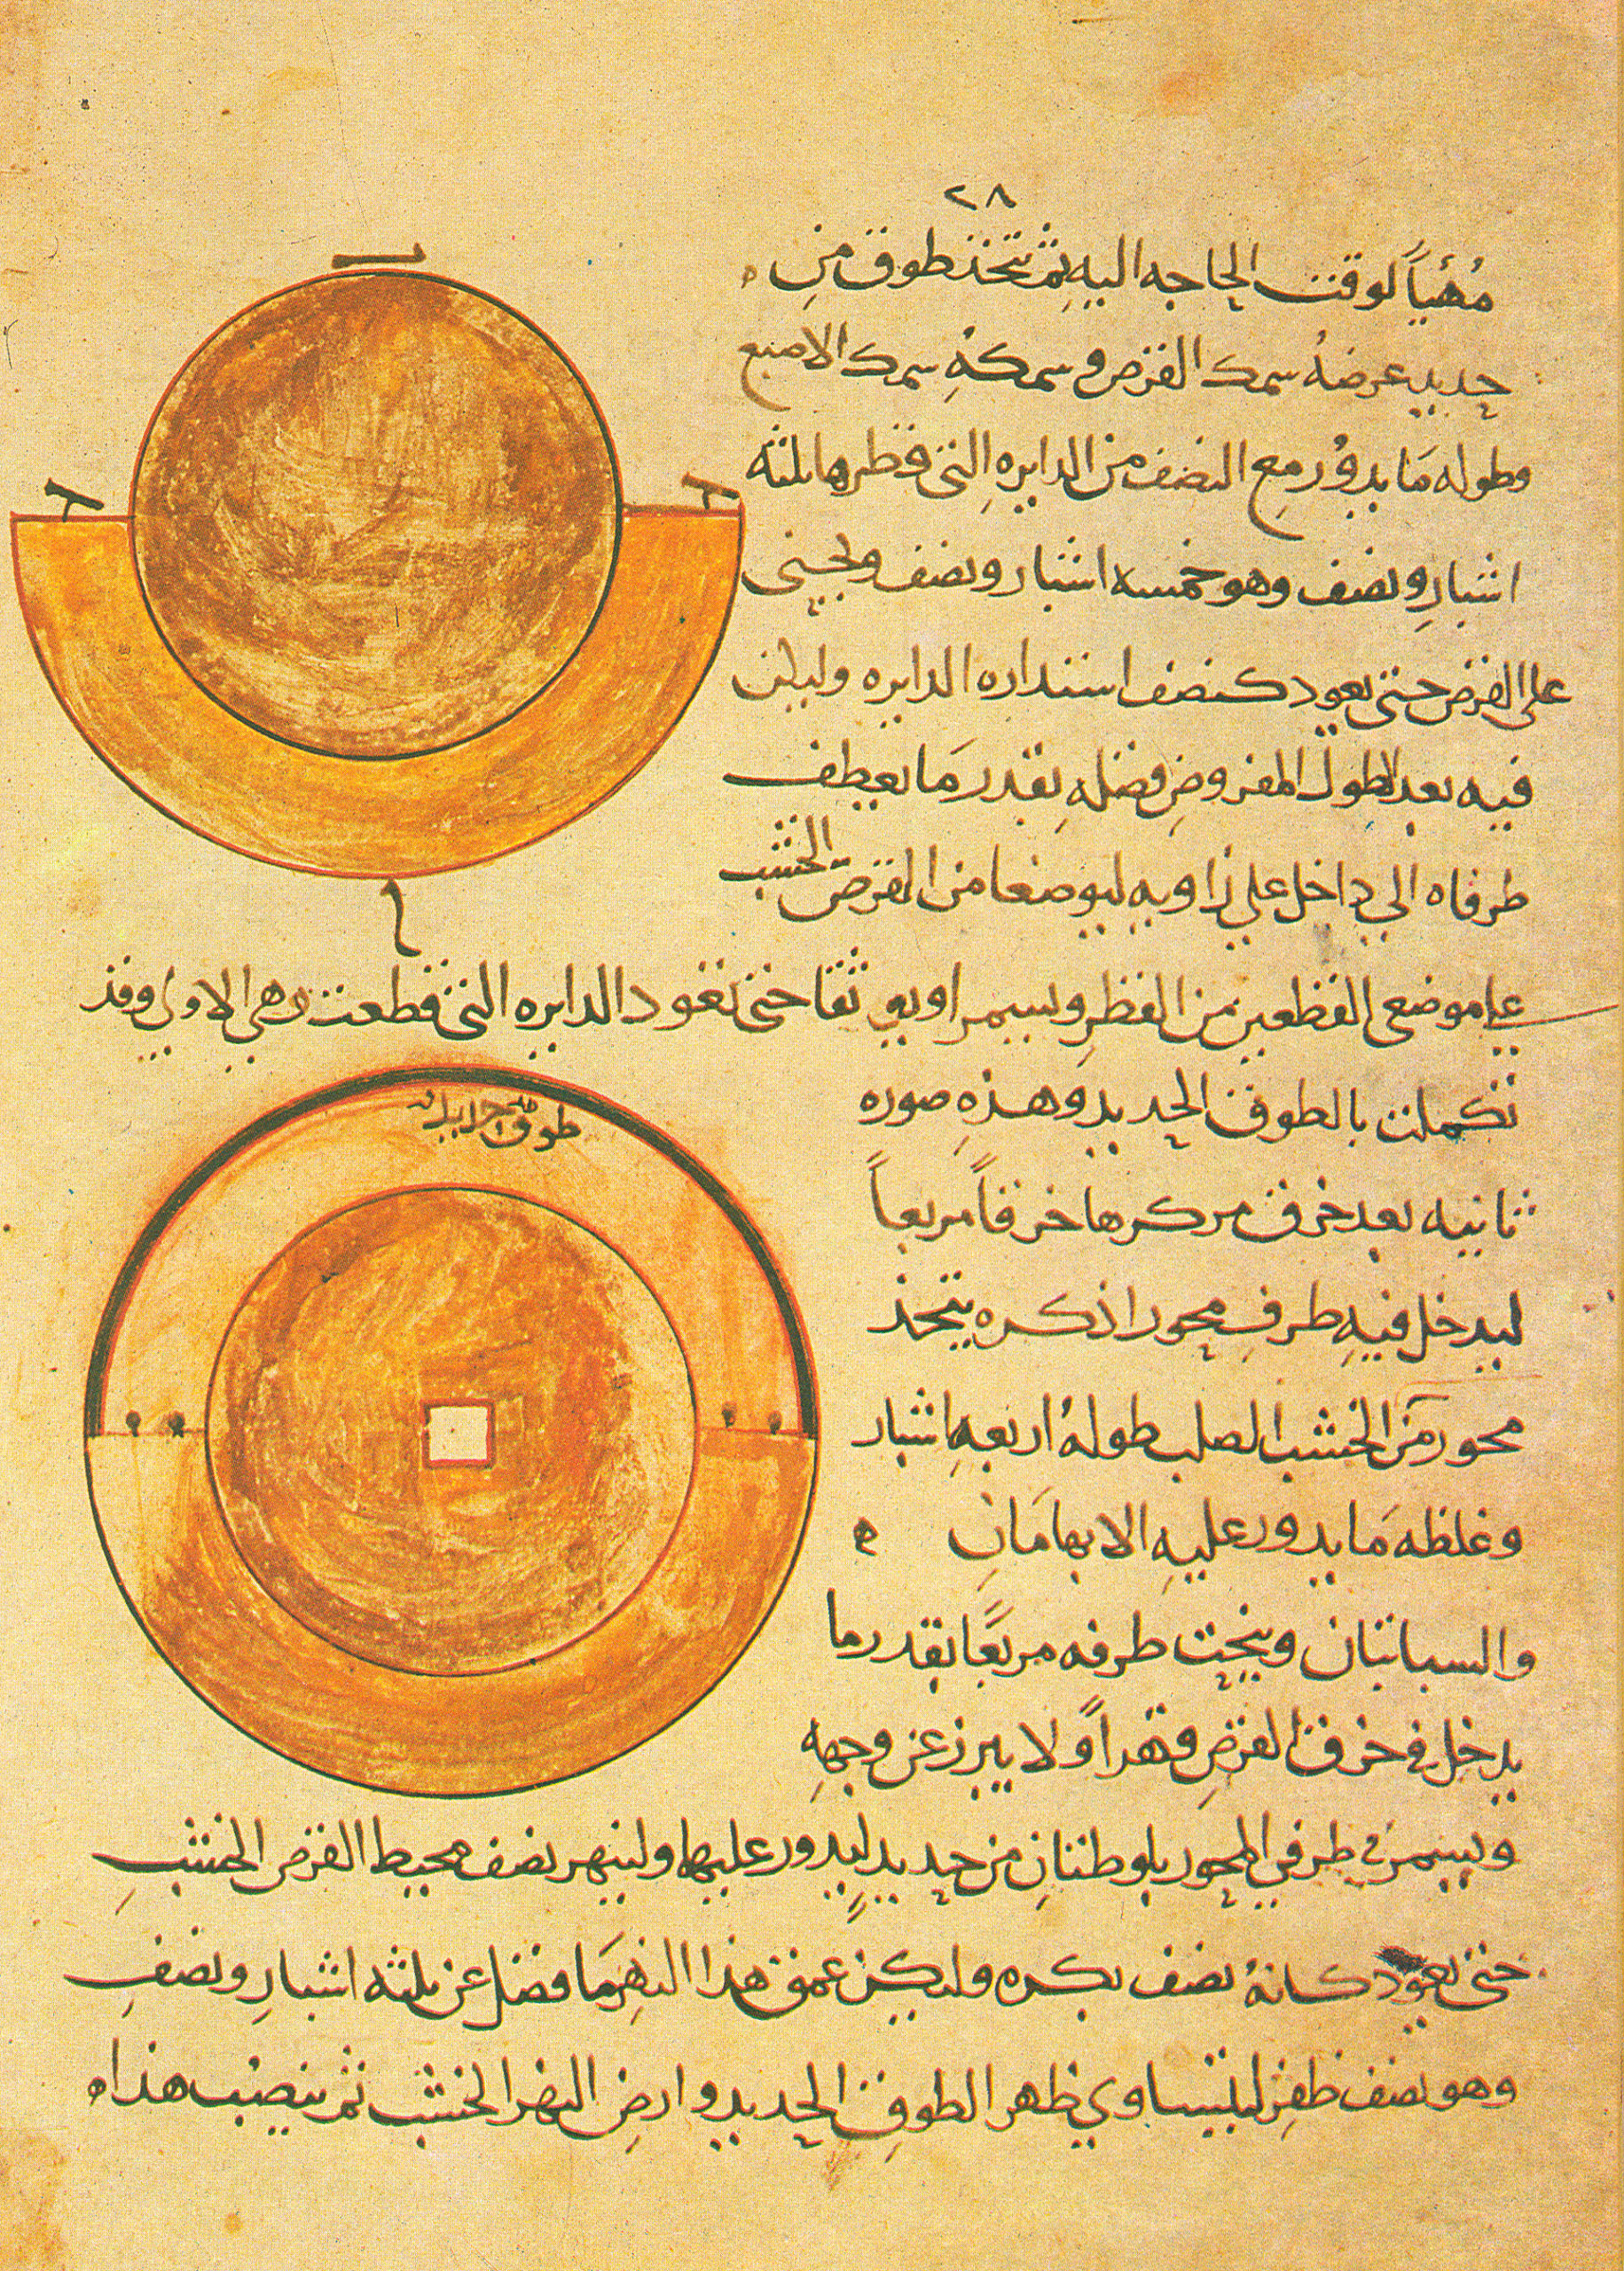 ٢٨
مُهَيأً لوقت الحاجه اليهِ ثم تتخذ طوق من
حديد عرضهُ سمك القرص وسمكهِ سمك الاصبع
وطوله مَا يدوُر مع النصف من الدايرهِ التى قطرها ثلثة
اشبارٍ ونصف وهو خمسه اشبار ونصف ولجينى
على القرص حتى يعود كنصف استداره الدايره وليكن
فيه بعد الطول المفروضِ فضلهِ بقدر مَا يعطف
طرفاه الى داخل على زاويه ليوضعا من القرص الخشب
على موضعى القطعين من القطرِ ويسمر اويو ثقا حتى تعود الدايره التى قطعت وهى الاولى وقد
تكملت بالطوق الحديد وهذهِ صوره
ثانيه بعد خرق مركزها خرقاً مربعاً
ليدخل فيهِ طرفِ محور اذكره يتخذ
محور مَن الخشب الصلب طولهُ اربعهِ اشبار
وغلظه مَا يدور عليهِ الابهامَانِ
والسبابتان وينحت طرفه مربعًا بقدر ما
يدخل فى خرق القرصِ قهراً ولا يبرز عن وجههِ
ويسمرَ فى طرفي المحور بلوطتانِ من حديدٍ ليدور عليهما ولينهر نصف محيط القرص الخشبِ
حتى يعود كانهُ نصف بكره وليكن عمق هذا النهرِ مَا فضل عن ثلثه اشبارٍ ونصفِ
وهو نصف ظفرٍ ليتساوي ظهر الطوقِ الحديد وارضِ النهر الخشب ثم ينصبُ هذا
ا
ب
طوق حديد